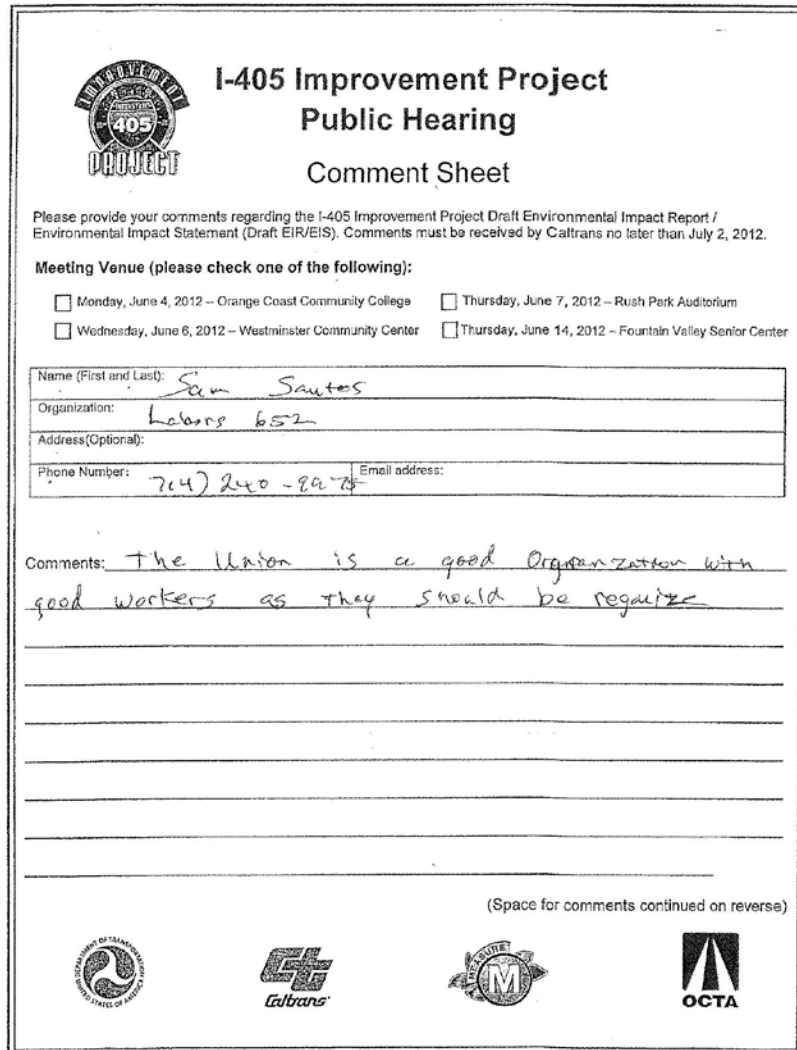 IMPROVEMENT
INTERSTATE
405
PROJECT
I-405 Improvement Project
Public Hearing
Comment Sheet
Please provide your comments regarding the I-405 Improvement Project Draft Environmental Impact Report /
Environmental Impact Statement (Draft EIR/EIS). Comments must be received by Caltrans no later than July 2, 2012.
Meeting Venue (please check one of the following):
Monday, June 4, 2012 – Orange Coast Community College
Thursday, June 7, 2012 – Rush Park Auditorium
Wednesday, June 6, 2012 – Westminster Community Center
Thursday, June 14, 2012 – Fountain Valley Senior Center
Name (First and Last): Sam Santos
Organization: Labors 652
Address(Optional):
Phone Number: 714) 240-
Email address:
Comments: The Union is a good Organization with
good workers as they should be regonize
(Space for comments continued on reverse)
DEPARTMENT OF TRANSPORTATION
UNITED STATES OF AMERICA
Caltrans
MEASURE
M
OCTA